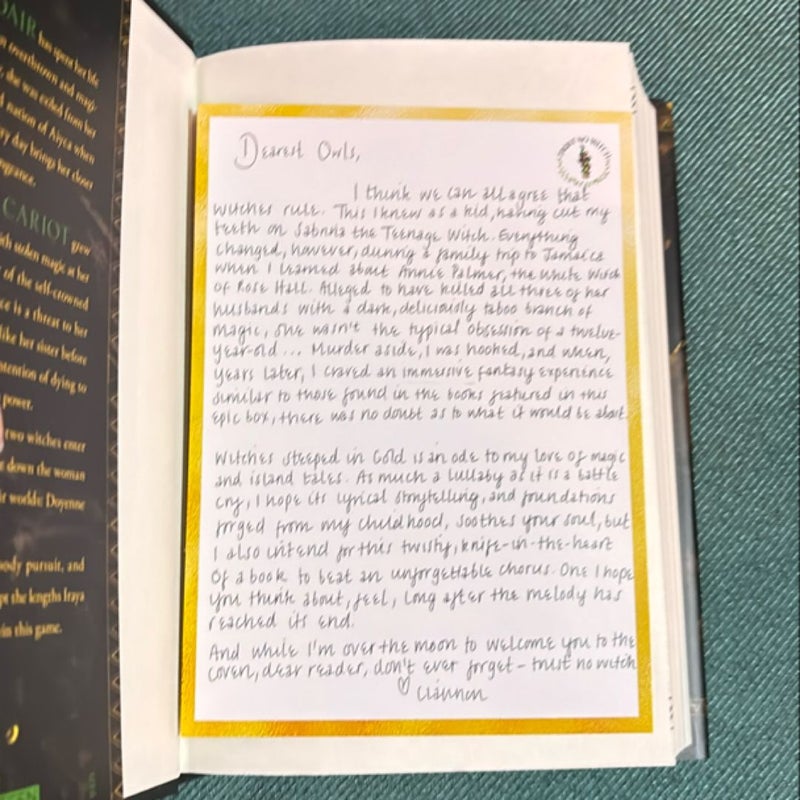 DAIR has spent her life
overthrown and magi-
she was exiled from her
nation of Aiyca when
ry day brings her closer
ngeance.
CARIOT grew
ith stolen magic at her
of the self-crowned
ce is a threat to her
like her sister before
ntention of dying to
power.
two witches enter
down the woman
ir worlds: Doyenne
ody pursuit, and
pt the lengths Iraya
in this game.
Dearest Owls,
I think we can all agree that
witches rule. This I knew as a kid, having cut my
teeth on Sabrina the Teenage Witch. Everything
changed, however, during a family trip to Jamaica
when I learned about Annie Palmer, the White Witch
of Rose Hall. Alleged to have killed all three of her
husbands with a dark, deliciously taboo branch of
magic, she wasn't the typical obsession of a twelve-
year-old... Murder aside, I was hooked, and when,
years later, I craved an immersive fantasy experience
similar to those found in the books featured in this
epic box, there was no doubt as to what it would be about.
Witches Steeped in Gold is an ode to my love of magic
and island tales. As much a lullaby as it is a battle
cry, I hope its lyrical storytelling, and foundations
forged from my childhood, soothes your soul, but
I also intend for this twisty, knife-in-the-heart
of a book to beat an unforgettable chorus. One I hope
you think about, feel, long after the melody has
reached its end.
And while I'm over the moon to welcome you to the
coven, dear reader, don't ever forget – trust no witch
♡ Ciannon